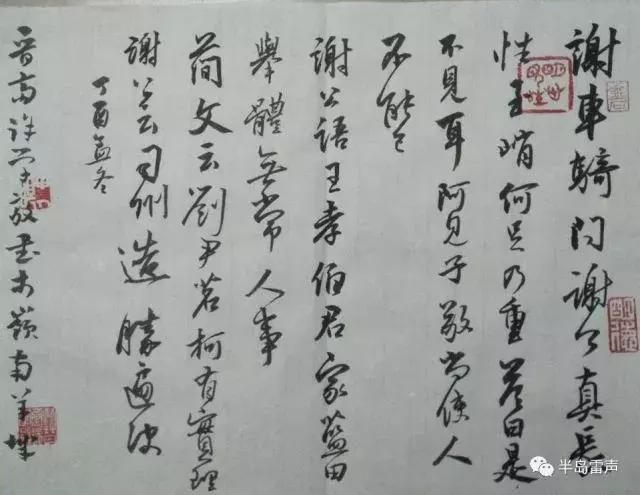 謝車騎問謝公真長
性至峭何足乃重答曰是
不見耳阿見子敬尚使人
不能已
謝公語王孝伯君家藍田
舉體無常人事
簡文云劉尹茗柯有實理
謝公云司州造勝遍決
丁酉孟冬
書於嶺南羊城
半岛雷声